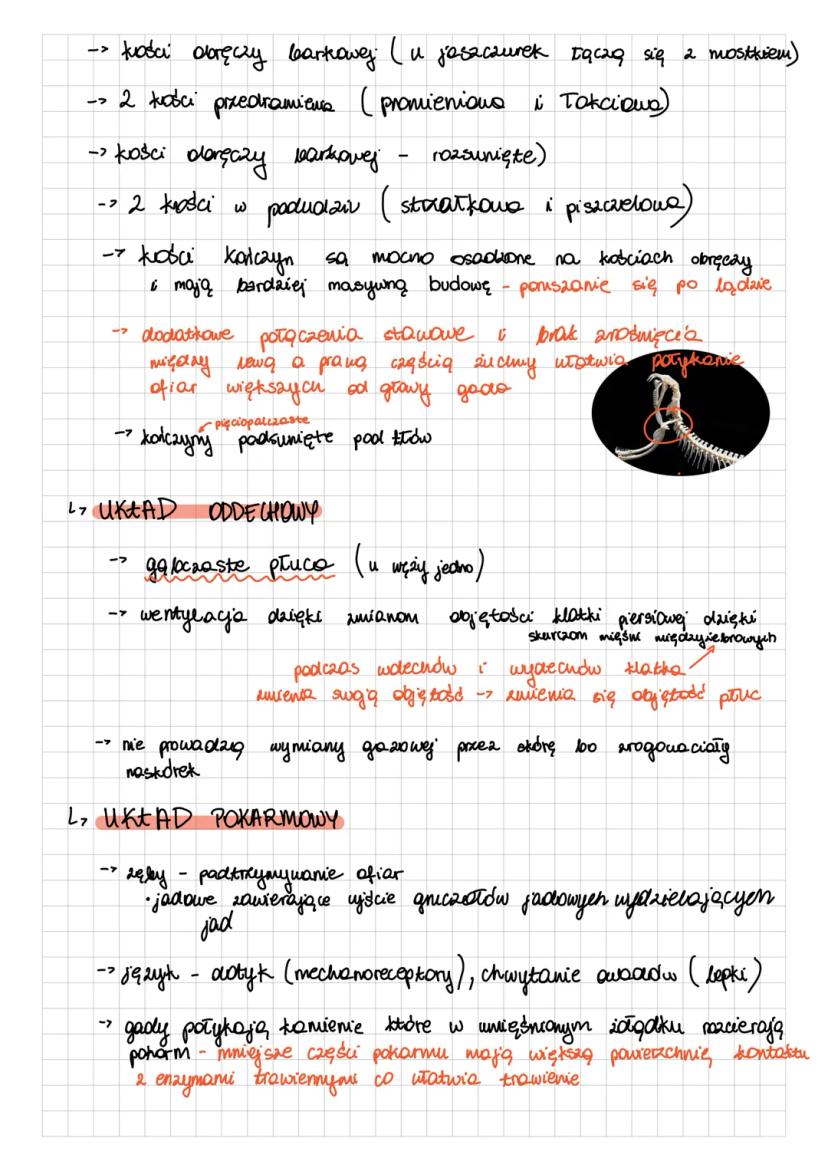 -> kości obręczy barkowej (u jaszczurek łączą się z mostkiem)
-> 2 kości przedramiena (promieniowa i łokciowa)
-> kości obręczy barkowej - rozsunięte)
-> 2 kości w podudziu (strzałkowa i piszczelowa)
-> kości kończyn są mocno osadzone na kościach obręczy
i mają bardziej masywną budowę - poruszanie się po lądzie
-> dodatkowe połączenia stawowe i brak zrośnięcia
między lewą a prawą częścią żuchwy ułatwia połykanie
ofiar większych od głowy gada
pięciopalczaste
-> kończyny podsunięte pod tłów
L> UKŁAD ODDECHOWY
-> gąbczaste płuca (u węży jedno)
-> wentylacja dzięki zmianom objętości klatki piersiowej dzięki
skurczom mięśni międzyżebrowych
podczas wdechów i wydechów klatka
zmienia swoją objętość -> zmienia się objętość płuc
-> nie prowadzą wymiany gazowej przez skórę bo zrogowaciały
naskórek
L> UKŁAD POKARMOWY
-> zęby - podtrzymywanie ofiar
• jadowe zawierające ujście gruczołów jadowych wydzielających
jad
-> język - dotyk (mechanoreceptory), chwytanie owadów (lepki)
-> gady połykają kamienie które w umięśnionym żołądku rozcierają
pokarm - mniejsze części pokarmu mają większą powierzchnię kontaktu
z enzymami trawiennymi co ułatwia trawienie